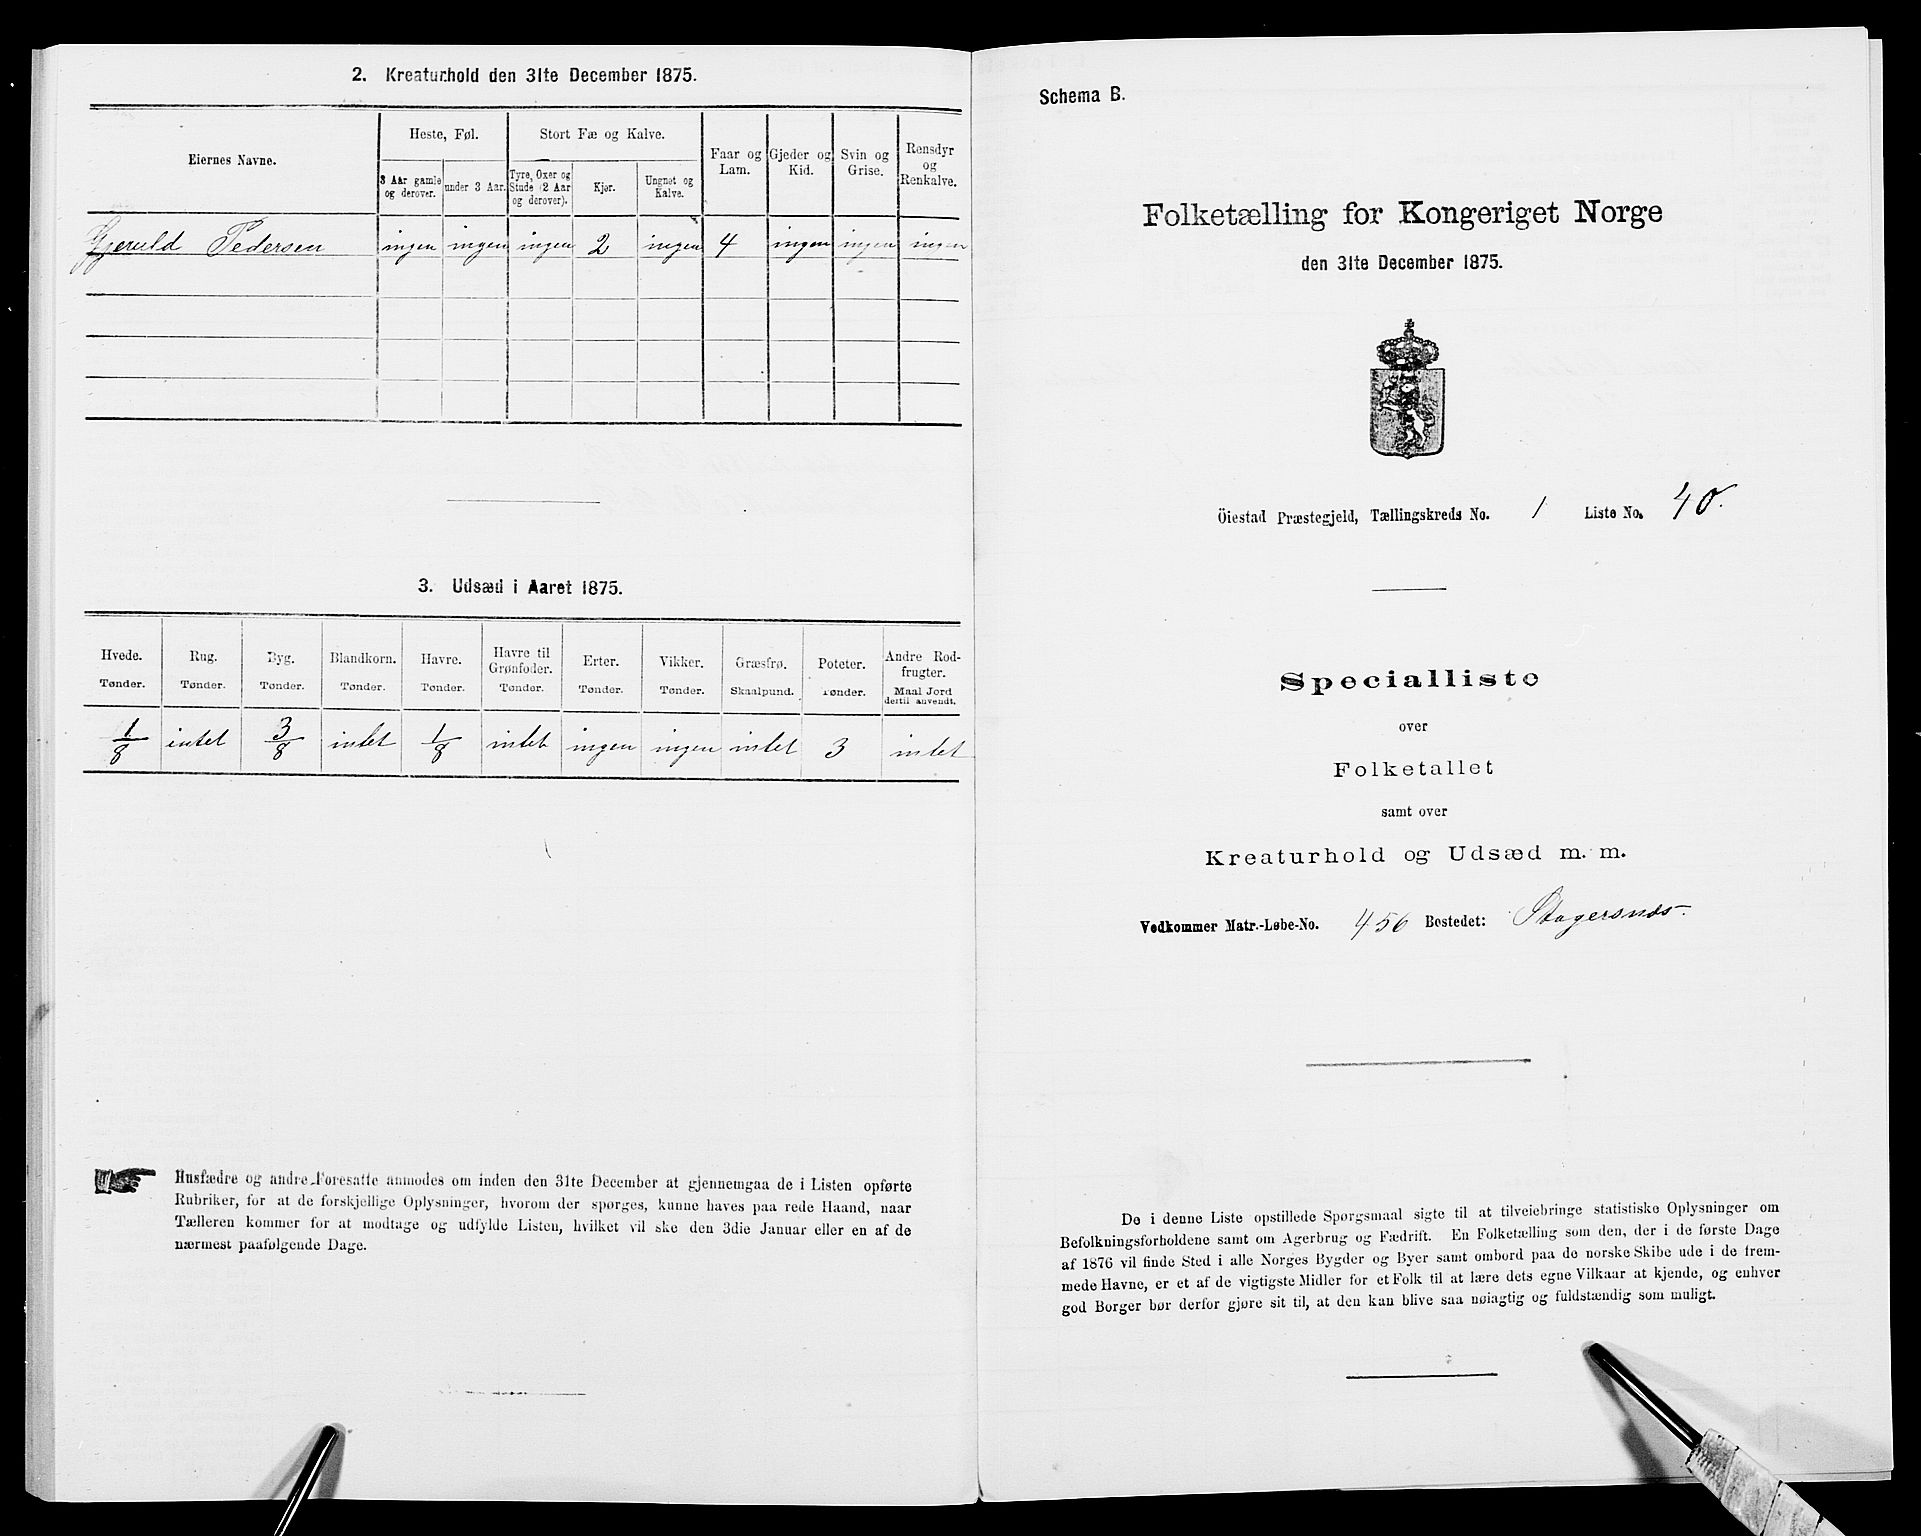 2. Kreaturhold den 31te December 1875.
Eiernes Navne.
Heste, Føl.
Stort Fæ og Kalve.
Faar og Lam.
Gjeder og Kid.
Svin og Grise.
Rensdyr og Renkalve.
3 Aar gamle og derover.
under 3 Aar.
Tyre, Oxer og Stude (2 Aar og derover).
Kjør.
Ungnøt og Kalve.
Gjeruld Pedersen ingen ingen ingen 2 ingen 4 ingen ingen ingen
3. Udsæd i Aaret 1875.
Hvede. Rug. Byg. Blandkorn. Havre. Havre til Grønfoder. Erter. Vikker. Græsfrø. Poteter. Andre Rodfrugter.
Tønder. Tønder. Tønder. Tønder. Tønder. Tønder. Tønder. Tønder. Skaalpund. Tønder. Maal Jord dertil anvendt.
1/8 intet 3/8 intet 1/8 intet ingen ingen intet 3 intet
Husfædre og andre Foresatte anmodes om inden den 31te December at gjennemgaa de i Listen opførte
Rubriker, for at de forskjellige Oplysninger, hvorom der spørges, kunne haves paa rede Haand, naar
Tælleren kommer for at modtage og udfylde Listen, hvilket vil ske den 3die Januar eller en af de
nærmest paafølgende Dage.
Schema B.
Folketælling for Kongeriget Norge
den 31te December 1875.
Öiestad Præstegjeld, Tællingskreds No. 1 Liste No. 40.
Specialliste
over
Folketallet
samt over
Kreaturhold og Udsæd m. m.
Vedkommer Matr.-Løbe-No. 456 Bostedet: Stagersnæs.
De i denne Liste opstillede Spørgsmaal sigte til at tilveiebringe statistiske Oplysninger om
Befolkningsforholdene samt om Agerbrug og Fædrift. En Folketælling som den, der i de første Dage
af 1876 vil finde Sted i alle Norges Bygder og Byer samt ombord paa de norske Skibe ude i de frem-
mede Havne, er et af de vigtigste Midler for et Folk til at lære dets egne Vilkaar at kjende, og enhver
god Borger bør derfor gjøre sit til, at den kan blive saa nøiagtig og fuldstændig som muligt.